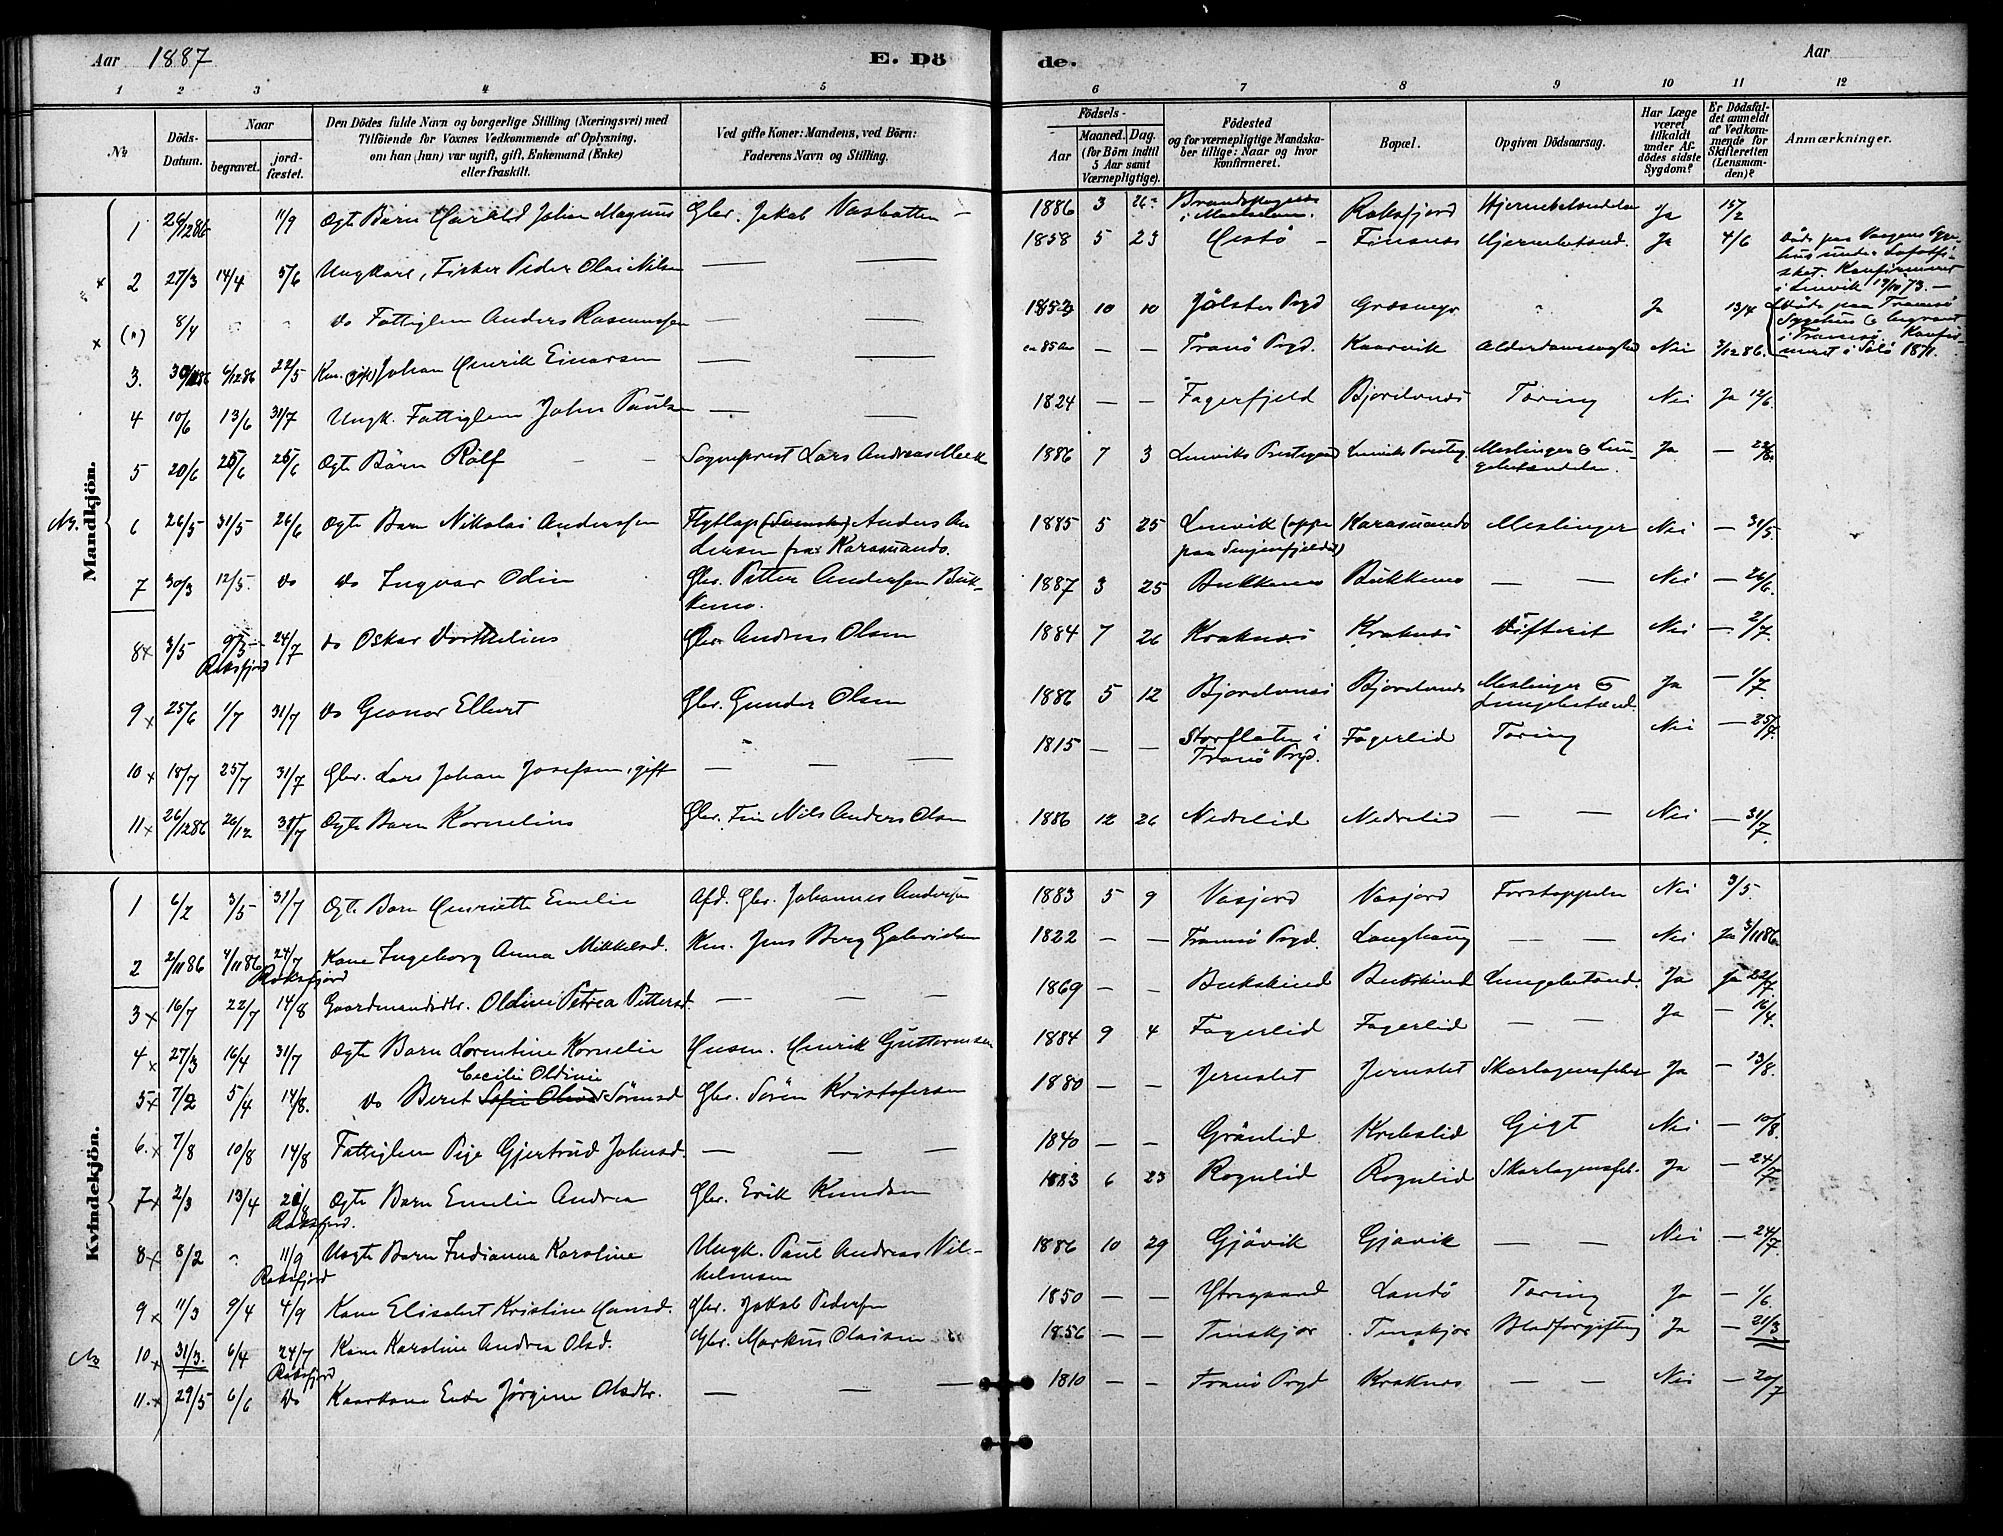 Aar 1887 E. Dö de. Aar
1 2 3 4 5 6 7 8 9 10 11 12
№ Döds-Datum. Naar begravet. jordfæstet. Den Dödes fulde Navn og borgerlige Stilling (Næringsvei) med Tilföiende for Voxnes Vedkommende af Oplysning, om han (hun) var ugift, gift, Enkemand (Enke) eller fraskilt. Ved gifte Koner: Mandens, ved Börn: Faderens Navn og Stilling. Födsels- Aar Maaned. Dag. (for Börn indtil 5 Aar samt Værnepligtige). Födested og for værnepligtige Mandskaber tillige: Naar og hvor konfirmeret. Bopæl. Opgiven Dödsaarsag. Har Læge været tilkaldt under Afdödes sidste Sygdom? Er Dödsfaldet anmeldt af Vedkommende for Skifteretten (Lensmanden)? Anmærkninger.
Mandkjön.
1 26/12 86 11/9 Ægte Barn Harald Johan Magnus Gbr. Jakob Vasbotten – 1886 3 26 Raksfjord Hjernebetændelse Ja 15/2
2 27/3 14/4 5/6 Ungkarl, Fisker Peder Olai Nilsen — — 1858 5 23 Hestö – Finsnes Hjernebetænd. Ja 4/6 Döde paa Vaagens Sygehus under Lofotfisket. Konfirmeret i Lenvik 19/10 73. –
(") 8/4 " " Do Fattiglem Anders Rasmussen — — 1853 10 10 Jölster Prgd Græsmyr " Ja 13/4 Döde paa Tromsö Sygehus & begravet i Tromsö. Konfirmeret i 1871.
3. 30/11 86 6/12 86 22/5 Johan Henrik Einarsen — — ca 85 Aar — — Tranö Prgd. Kaarvik Alderdomssvaghed Nei 3/12 86.
4 10/6 13/6 31/7 Ungk. Fattiglem John Paulsen — — 1824 — — Fagerfjeld Bjorelvnes Tæring Nei Ja 12/6.
5 20/6 25/6 25/6 Ægte Barn Rolf — — Sogneprest Lars Andreas Meek 1886 7 3 Lenviks Prestegaard Lenviks Presteg. Meslinger & Lungebetændelse. Ja — 22/6.
No. 6 26/5 31/5 26/6 Ægte Barn Nikolai Anderssen Flytlap (Svensk) Anders Andersen fra Karasuando. 1885 5 25 Lenvik (oppe paa Senjenfjeldet) Karasuando Meslinger Nei — 31/5
7 30/3 12/5. Do Do Ingvar Odin Gbr. Petter Anderssen Bukkemo. 1887 3 25 Bukkemo Bukkemo — — Nei — 26/6
8x 3/5 9/5 Raksfjord 24/7 Do Oskar Dorthelius Gbr. Andreas Olsen 1884 7 26 Kraknes Kraknes Difterit Nei — 2/7.
9x 25/6 1/7 31/7 Do Geonor Ellert Gbr. Gunder Olsen 1886 5 12 Bjorelvnes Bjorelvnes Meslinger & Lungebetænd. Ja — 1/7.
10x 18/7 25/7 31/7 Gbr. Lars Johan Josefsen, gift — — — 1815 — — Storfloten i Tranö Prgd. Fagerlid Tæring Nei — 25/7.
11x 26/12 86 26/12 31/7 Ægte Barn Kornelius Gbr. Fin Nils Anders Olsen 1886 12 26 Nedrelid Nedrelid — — Nei — 31/7.
Kvindekjön.
1 6/2 3/5 31/7 Ægte Barn Henriette Emelie Afd. Gbr. Johannes Andersen 1883 5 9 Vasjord Vasjord Forstoppelse Nei 3/5.
2 2/11 86 4/11 86 24/7 Raksfjord Kone Ingeborg Anna Mikkelsd. Jens Berg Gabrielsen 1822 — — Tromsö Prgd. Langhaug — — Nei Ja 3/11 86
3x 16/7 22/7 14/8 Gaardmandsdtr. Oldine Petrea Pettersd. — — — 1869 — — Bukskind Bukskind Lungebetænd. Ja Ja 22/7
4x 27/3 16/4 31/7 Ægte Barn Lorentine Kornelie Husm. Henrik Guttormsen 1884 9 4 Fagerlid Fagerlid — — Ja — 16/4.
5x 7/2 5/4 14/8. Do Beret Cecilie Oldine Sörensd Gbr. Sören Kristofersen 1880 — — Jernslet Jernslet Skarlagensfeber Ja — 13/8.
6.x 7/8 10/8 14/8 Fattiglem Pige Gjertrud Johnsd. — — — 1840 — — Grönlid Krekslid Gigt Nei — 10/8.
7x 2/3 13/4 21/8 Raksfjord. Ægte Barn Emelie Andrea Gbr. Erik Knudsen 1883 6 23 Rognlid Rognlid Skarlagensfeb. Ja — 24/7.
8x 8/2 " 11/9 Raksfjord Uægte Barn Indianna Karoline Ungk. Paul Andreas Vilhelmsen 1886 10 29 Gjövik Gjövik — — Nei — 24/7.
9x 11/3 9/4 4/9 Kone Elisabet Kristine Hansd. Gbr. Jakob Pedersen 1850 — — Ytregaard Sandö Tæring Ja — 1/6.
No 10x 31/3. 6/4 24/7 Raksfjord Kone Karoline Andrea Olsd. Gbr. Markus Olaisen 1856 — — Tenskjær Tenskjær Blodforgiftning Ja — 21/3
11.x 29/5 6/6 Do Kaarkone Enke Jörgine Olsdtr. — — — 1810 — — Tranö Prgd Kraknes — — Nei — 20/7